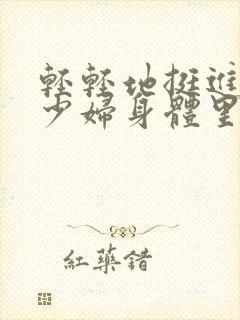 輕輕地挺進
少婦身體里
紅藥錯